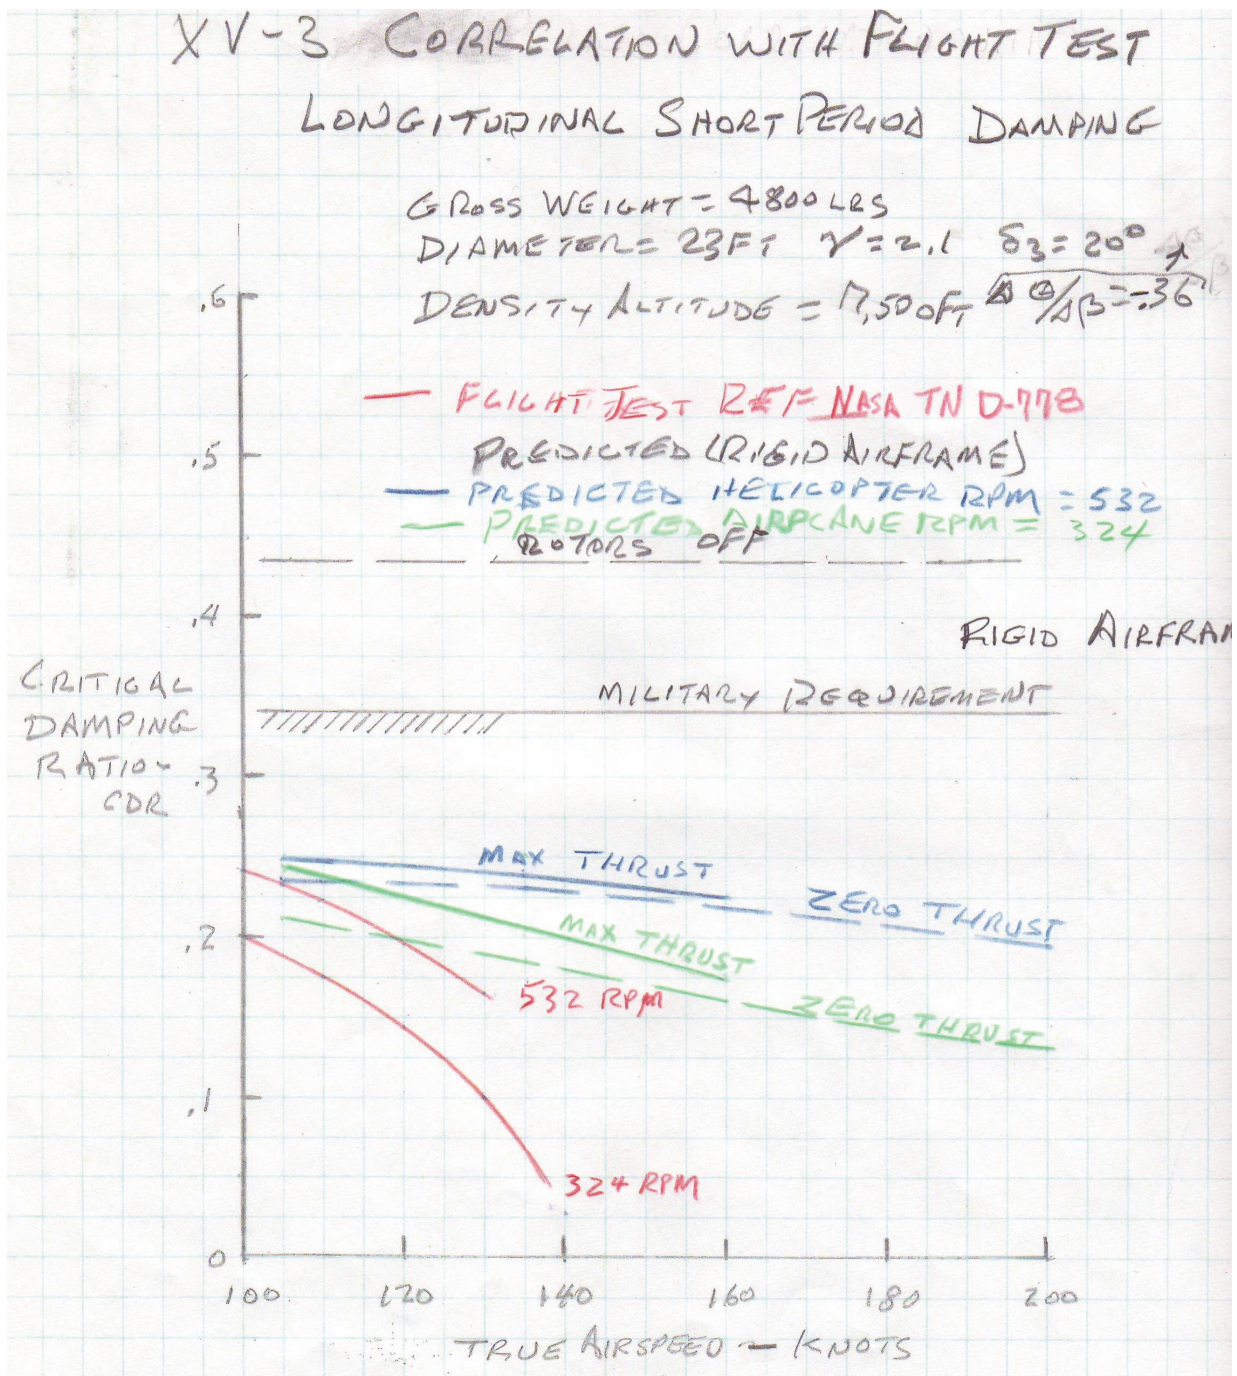 XV-3 CORRELATION WITH FLIGHT TEST
LONGITUDINAL SHORT PERIOD DAMPING
GROSS WEIGHT = 4800 LBS
DIAMETER = 23 FT γ = 2.1 δ3 = 20°
DENSITY ALTITUDE = 7,500 FT ΔΘ/Δβ = -.36
FLIGHT TEST REF NASA TN D-778
PREDICTED (RIGID AIRFRAME)
PREDICTED HELICOPTER RPM = 532
PREDICTED AIRPLANE RPM = 324
ROTORS OFF
RIGID AIRFRAM
MILITARY REQUIREMENT
CRITICAL
DAMPING
RATIO-
CDR
.6
.5
.4
.3
.2
.1
0
MAX THRUST
ZERO THRUST
MAX THRUST
ZERO THRUST
532 RPM
324 RPM
100 120 140 160 180 200
TRUE AIRSPEED — KNOTS